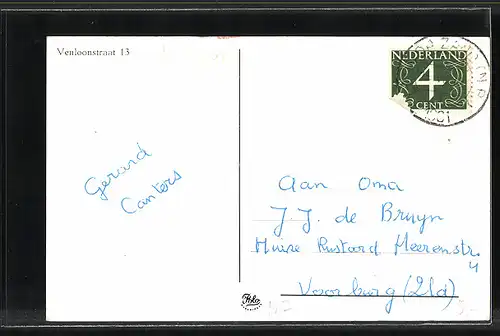 Venloonstraat 13
NEDERLAND
4
CENT
1961
Gerard
Canters
Aan Oma
J.J. de Bruyn
Huize Rustoord Heerenstr.
4
Voorburg (Zld)